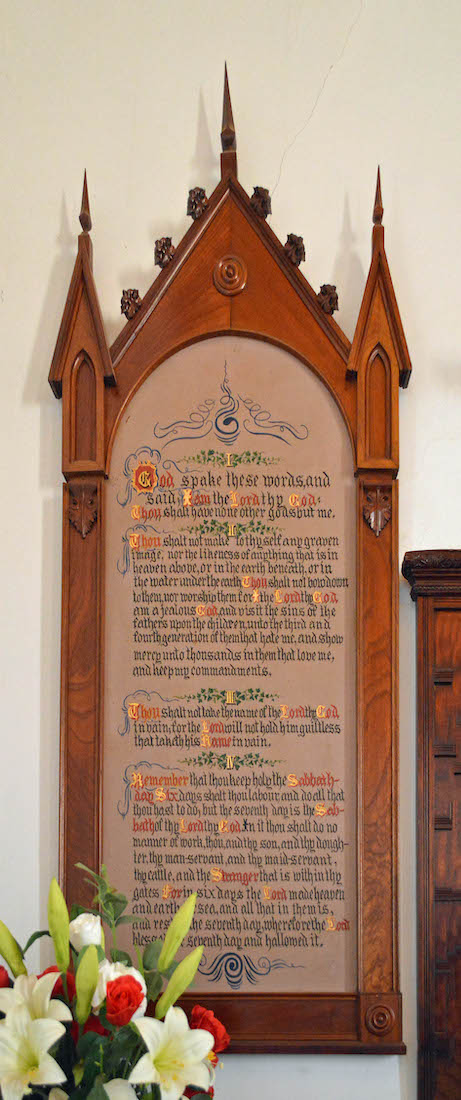 I
God spake these words, and
said; I am the Lord thy God:
Thou shalt have none other gods but me.
II
Thou shalt not make to thyself any graven
image, nor the likeness of anything that is in
heaven above, or in the earth beneath, or in
the water under the earth Thou shalt not bow down
to them, nor worship them for I the Lord thy God,
am a jealous God, and visit the sins of the
fathers upon the children, unto the third and
fourth generation of them that hate me, and show
mercy unto thousands in them that love me,
and keep my commandments.
III
Thou shalt not take the name of the Lord thy God,
in vain; for the Lord will not hold him guiltless
that taketh his Name in vain.
IV
Remember that thou keep holy the Sabbath-
day Six days shalt thou labour, and do all that
thou hast to do; but the seventh day is the Sab-
bath of thy Lord thy God. In it thou shalt do no
manner of work, thou, and thy son, and thy dough-
ter, thy man-servant, and thy maid-servant,
thy cattle, and the Stranger that is within thy
gates For in six days the Lord made heaven
and earth sea, and all that in them is,
and res the seventh day, wherefore the Lord
bles seventh day and hallowed it.